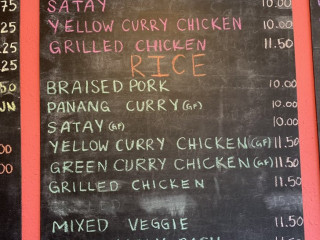 75 SATAY 10.00
.25 YELLOW CURRY CHICKEN 10.00
.25 GRILLED CHICKEN 11.50
.25 RICE
.50 BRAISED PORK 10.00
WN PANANG CURRY (GF) 10.00
SATAY (GF) 10.00
00 YELLOW CURRY CHICKEN (GF) 11.50
00 GREEN CURRY CHICKEN (GF) 11.50
GRILLED CHICKEN 11.50
MIXED VEGGIE 11.50